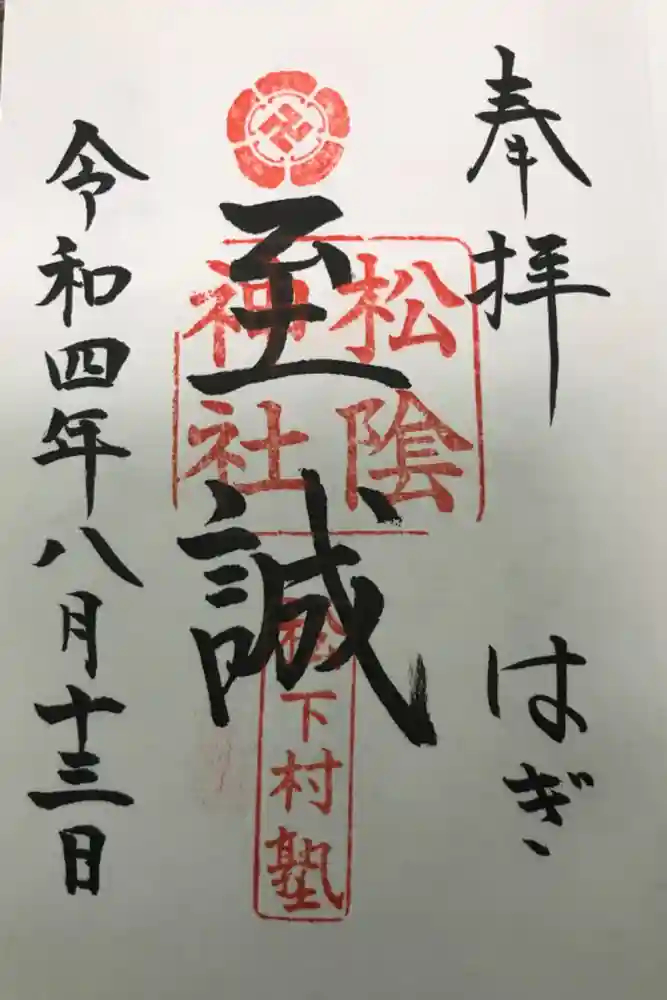 奉拝 はぎ
至誠
松陰
神社
松下村塾
令和四年八月十三日